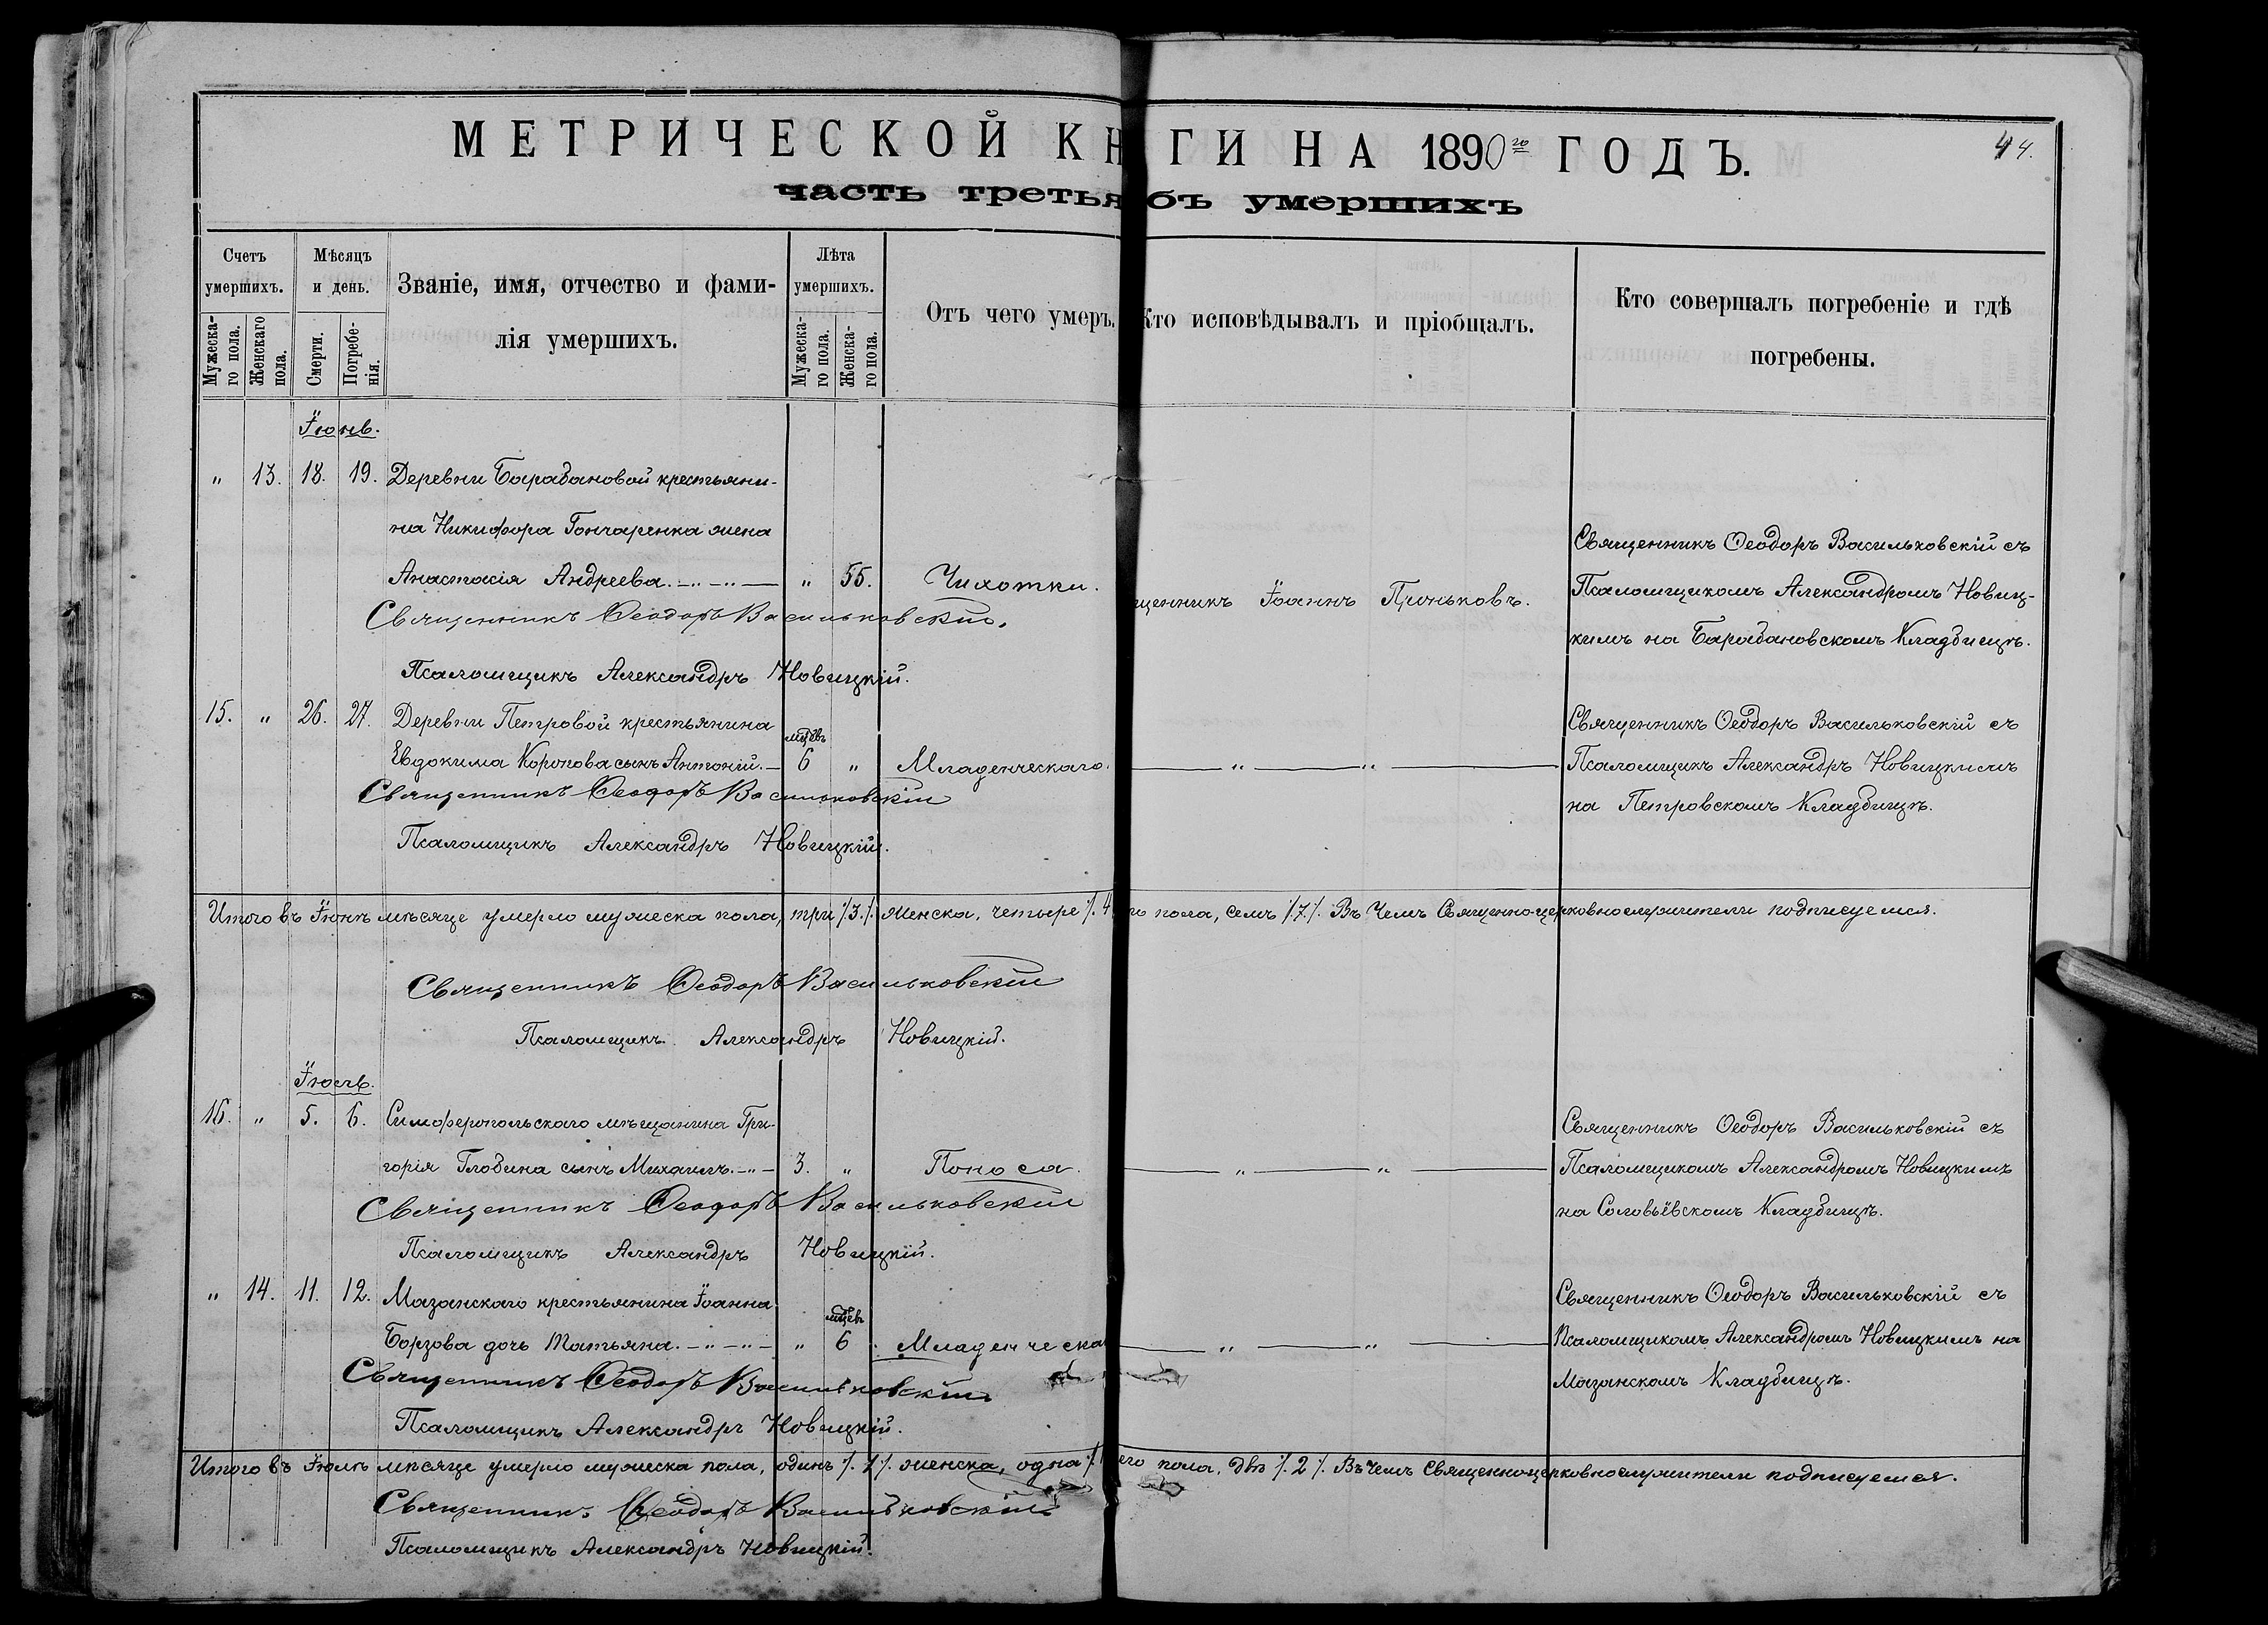 МЕТРИЧЕСКОЙ КН ГИ НА 1890го ГОДЪ.
44.
часть третья бъ умершихъ
Счетъ умершихъ.
Мужеска-го пола.
Женскаго пола.
Мѣсяцъ и день.
Смерти.
Погребе-нія.
Званіе, имя, отчество и фами-
лія умершихъ.
Лѣта умершихъ.
Мужеска-го пола.
Женска-го пола.
Отъ чего умеръ.
Кто исповѣдывалъ и пріобщалъ.
Кто совершалъ погребеніе и гдѣ
погребены.
Іюнь.
" 13. 18. 19. Деревни Барабановой крестьяни-
на Никифора Гончаренка жена
Анастасія Андреева. " 55. Чихотки.
щенникъ Іоаннъ Проньковъ.
Священникъ Ѳеодоръ Васильковскій съ
Псаломщикомъ Александромъ Новиц-
кимъ на Барабановскомъ Кладбищѣ.
Священникъ Ѳеодоръ Васильковскій.
Псаломщикъ Александръ Новицкій.
15. " 26. 27. Деревни Петровой крестьянина
Евдокима Коропова сынъ Антоній. мцевъ 6 " Младенческаго
" "
Священникъ Ѳеодоръ Васильковскій съ
Псаломщикъ Александръ Новицкимъ
на Петровскомъ Кладбищѣ.
Священникъ Ѳеодоръ Васильковскій
Псаломщикъ Александръ Новицкій.
Итого въ Іюнѣ мѣсяце умерло мужеска пола, три /3./. женска, четыре /.4 го пола, семь /.7./. Въ Чемъ Священно-церковнослужители подписуемся.
Священникъ Ѳеодоръ Васильковскій
Псаломщикъ Александръ Новицкій.
Іюль.
16. " 5. 6. Симферопольскаго мѣщанина Гри-
горія Глобина сынъ Михаилъ. 3. " Поноса.
" "
Священникъ Ѳеодоръ Васильковскій съ
Псаломщикомъ Александромъ Новицкимъ
на Соловьёвскомъ Кладбищѣ.
Священникъ Ѳеодоръ Васильковскій
Псаломщикъ Александръ Новицкій.
" 14. 11. 12. Мазанскаго крестьянина Іоанна
Борзова дочь Татьяна. " мцевъ 6 Младенческа
" "
Священникъ Ѳеодоръ Васильковскій съ
Псаломщикомъ Александромъ Новицкимъ на
Мазанскомъ Кладбищѣ.
Священникъ Ѳеодоръ Васильковскій
Псаломщикъ Александръ Новицкій.
Итого въ Іюлѣ мѣсяце умерло мужеска пола, одинъ /.1/. женска, одна /. его пола, двѣ /.2/. Въ Чемъ Священно-церковнослужители подписуемся.
Священникъ Ѳеодоръ Васильковскій
Псаломщикъ Александръ Новицкій.